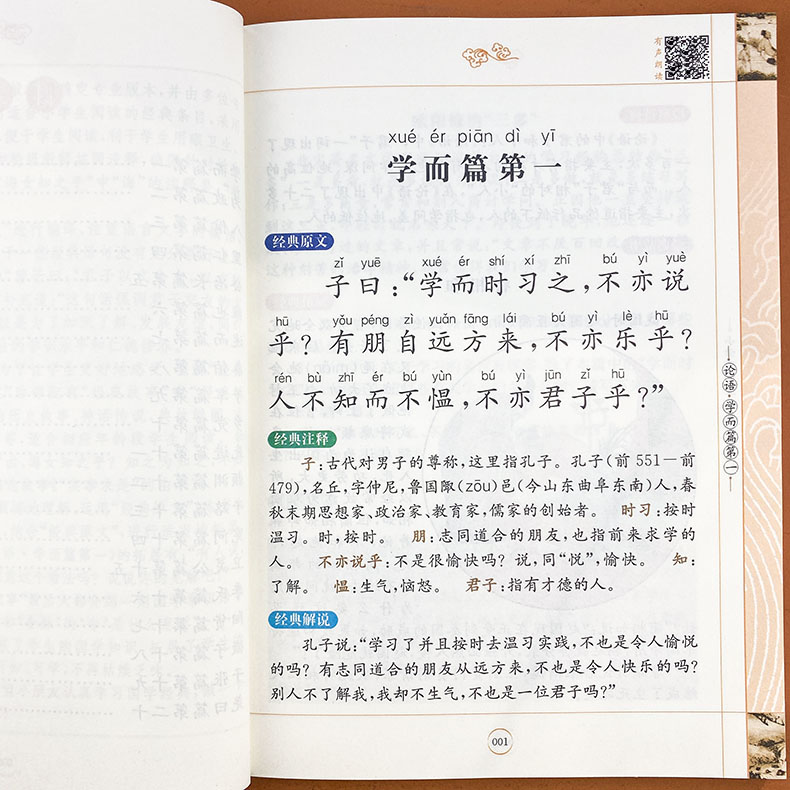 有声朗读
xué ér piān dì yī
学而篇第一
经典原文
zǐ yuē xué ér shí xí zhī bú yì yuè
子曰：“学而时习之，不亦说
hū yǒu péng zì yuǎn fāng lái bú yì lè hū
乎？有朋自远方来，不亦乐乎？
rén bù zhī ér bú yùn bú yì jūn zǐ hū
人不知而不愠，不亦君子乎？”
经典注释
子：古代对男子的尊称，这里指孔子。孔子（前551－前
479），名丘，字仲尼，鲁国陬（zōu）邑（今山东曲阜东南）人，春
秋末期思想家、政治家、教育家，儒家的创始者。 时习：按时
温习。时，按时。 朋：志同道合的朋友，也指前来求学的
人。 不亦说乎：不是很愉快吗？说，同“悦”，愉快。 知：
了解。 愠：生气，恼怒。 君子：指有才德的人。
经典解说
孔子说：“学习了并且按时去温习实践，不也是令人愉悦
的吗？有志同道合的朋友从远方来，不也是令人快乐的吗？
别人不了解我，我却不生气，不也是一位君子吗？”
论语·学而篇第一
001